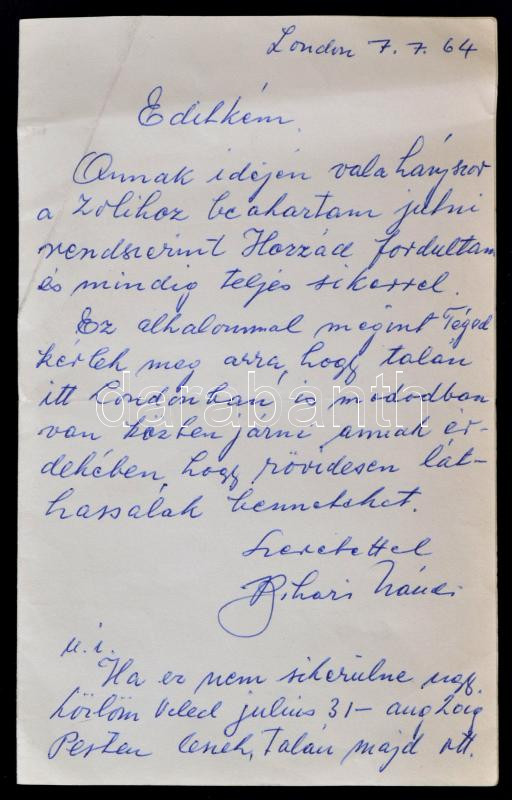 London 7. 7. 64
Editkém.
Annak idején valahányszor
a Zolihoz beakartam jutni
rendszerint Hozzád fordultam
és mindig teljes sikerrel.
Ez alkalommal megint Téged
kérlek meg arra, hogy talán
itt Londonban is módodban
van közben járni annak ér-
dekében, hogy rövidesen lát-
hassalak benneteket.
Szeretettel
Bihari Nándi
u.i.
Ha ez nem sikerülne úgy
közlöm Veled julius 31- aug 20ig
Pesten leszek, talán majd ott.
darabanth